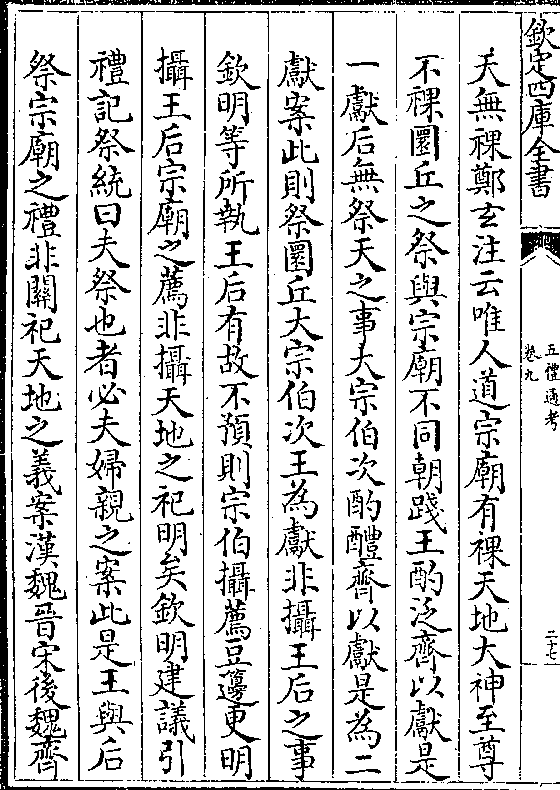 欽定四庫全書
五禮通考
卷九
二十七
天無祼鄭玄注云唯人道宗廟有祼天地大神至尊
不祼圜丘之祭與宗廟不同朝踐王酌泛齊以獻是
一獻后無祭天之事大宗伯次酌醴齊以獻是為二
獻案此則祭圜丘大宗伯次王為獻非攝王后之事
欽明等所執王后有故不預則宗伯攝薦豆籩更明
攝王后宗廟之薦非攝天地之祀明矣欽明建議引
禮記祭統曰夫祭也者必夫婦親之案此是王與后
祭宗廟之禮非關祀天地之義案漢魏晉宋後魏齊